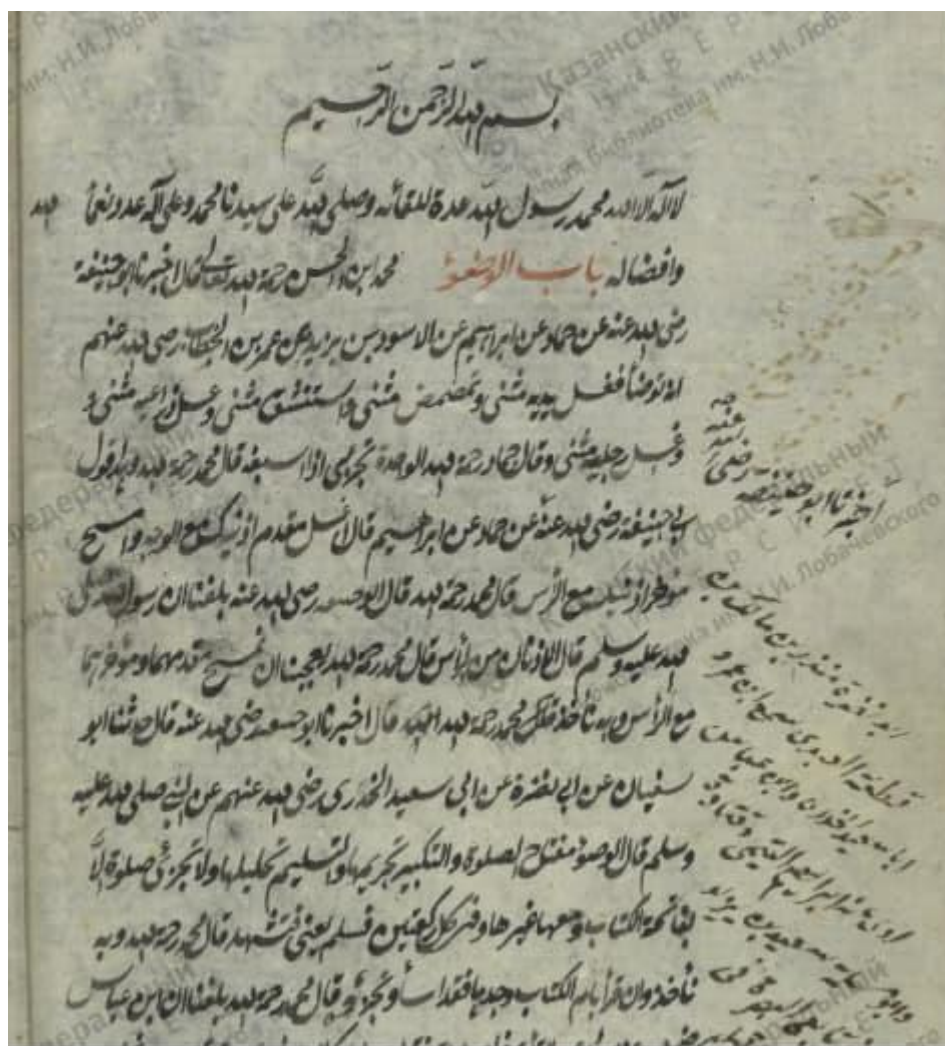 بسم الله الرحمن الرحيم
لا اله الا الله محمد رسول الله عدة للقائه وصلى الله على سيدنا محمد وعلى آله عدد نعماء الله
وافضاله باب الوضوء محمد ابن الحسن رحمة الله تعالى قال اخبرنا ابو حنيفة
رضى الله عنه عن حماد عن ابراهيم عن الاسود بن يزيد عن عمر بن الخطاب رضى الله عنهم
انه توضأ فغسل يديه مثنى وتمضمض مثنى واستنشق مثنى وغسل ذراعيه مثنى و
وغسل رجليه مثنى وقال حماد رحمة الله الواحدة تجزئ اذا اسبغه قال محمد رحمة الله وهو قول
ابي حنيفة رضى الله عنه عن حماد عن ابراهيم قال اغسل مقدم اذنيك مع الوجه وامسح
مؤخر اذنيك مع الرأس قال محمد رحمة الله قال ابو حنيفة رضى الله عنه بلغنا ان رسول الله صلى
الله عليه وسلم قال الاذنان من الرأس قال محمد رحمة الله يعجبنا ان نمسح مقدمهما ومؤخرهما
مع الرأس وبه نأخذ محمد رحمة الله قال اخبرنا ابو حنيفة رضى الله عنه قال حدثنا ابو
سفيان عن ابي نضرة عن ابي سعيد الخدري رضى الله عنهم عن النبي صلى الله عليه
وسلم قال الوضوء مفتاح الصلوة والتكبير تحريمها والتسليم تحليلها ولا تجزئ صلوة الا
بفاتحة الكتاب ومعها غيرها وفى كل ركعتين فسلم يعنى فتشهد قال محمد رحمة الله وبه
نأخذ وان قرأ بام الكتاب وحدها فقد اساء وتجزئه وقال محمد رحمة الله بلغنا ان ابن عباس
اخبرنا ابو حنيفة
رضى الله عنه
ابو نضرة منذر بن مالك بن
قطعة العبدى سمع ابن عمر و
ابا سعيد الخدرى وابن عباس
ابراهيم التيمى وقتادة
سعيد بن يزيد